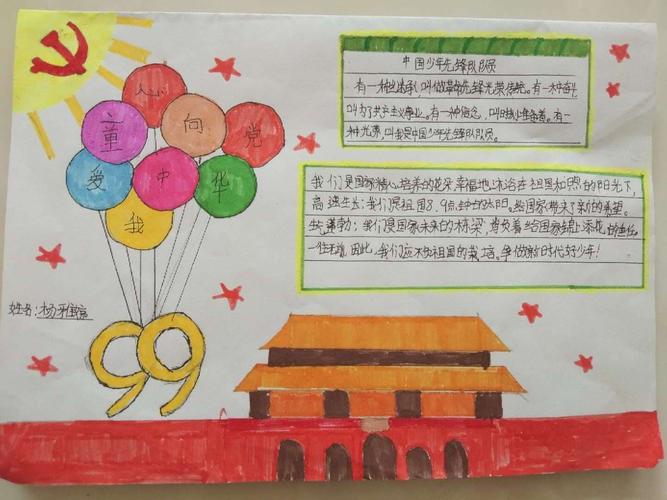 童
心
向
党
爱
我
中
华
99
姓名:杨雅
中国少年先锋队队员
有一种继承叫做革命先锋光荣传统。有一种奋斗
叫为了共产主义事业。有一种信念,叫时刻准备着。有一
种光荣,叫我是中国少年先锋队队员。
我们是国家精心培养的花朵,幸福地沐浴在祖国和煦的阳光下,
高速生长;我们是祖国8、9点钟的太阳。给国家带来了新的希望。
蓬勃;我们是国家未来的栋梁,肩负着给国家锦上添花的责任
因此,我们应不负祖国的栽培,争做新时代好少年!